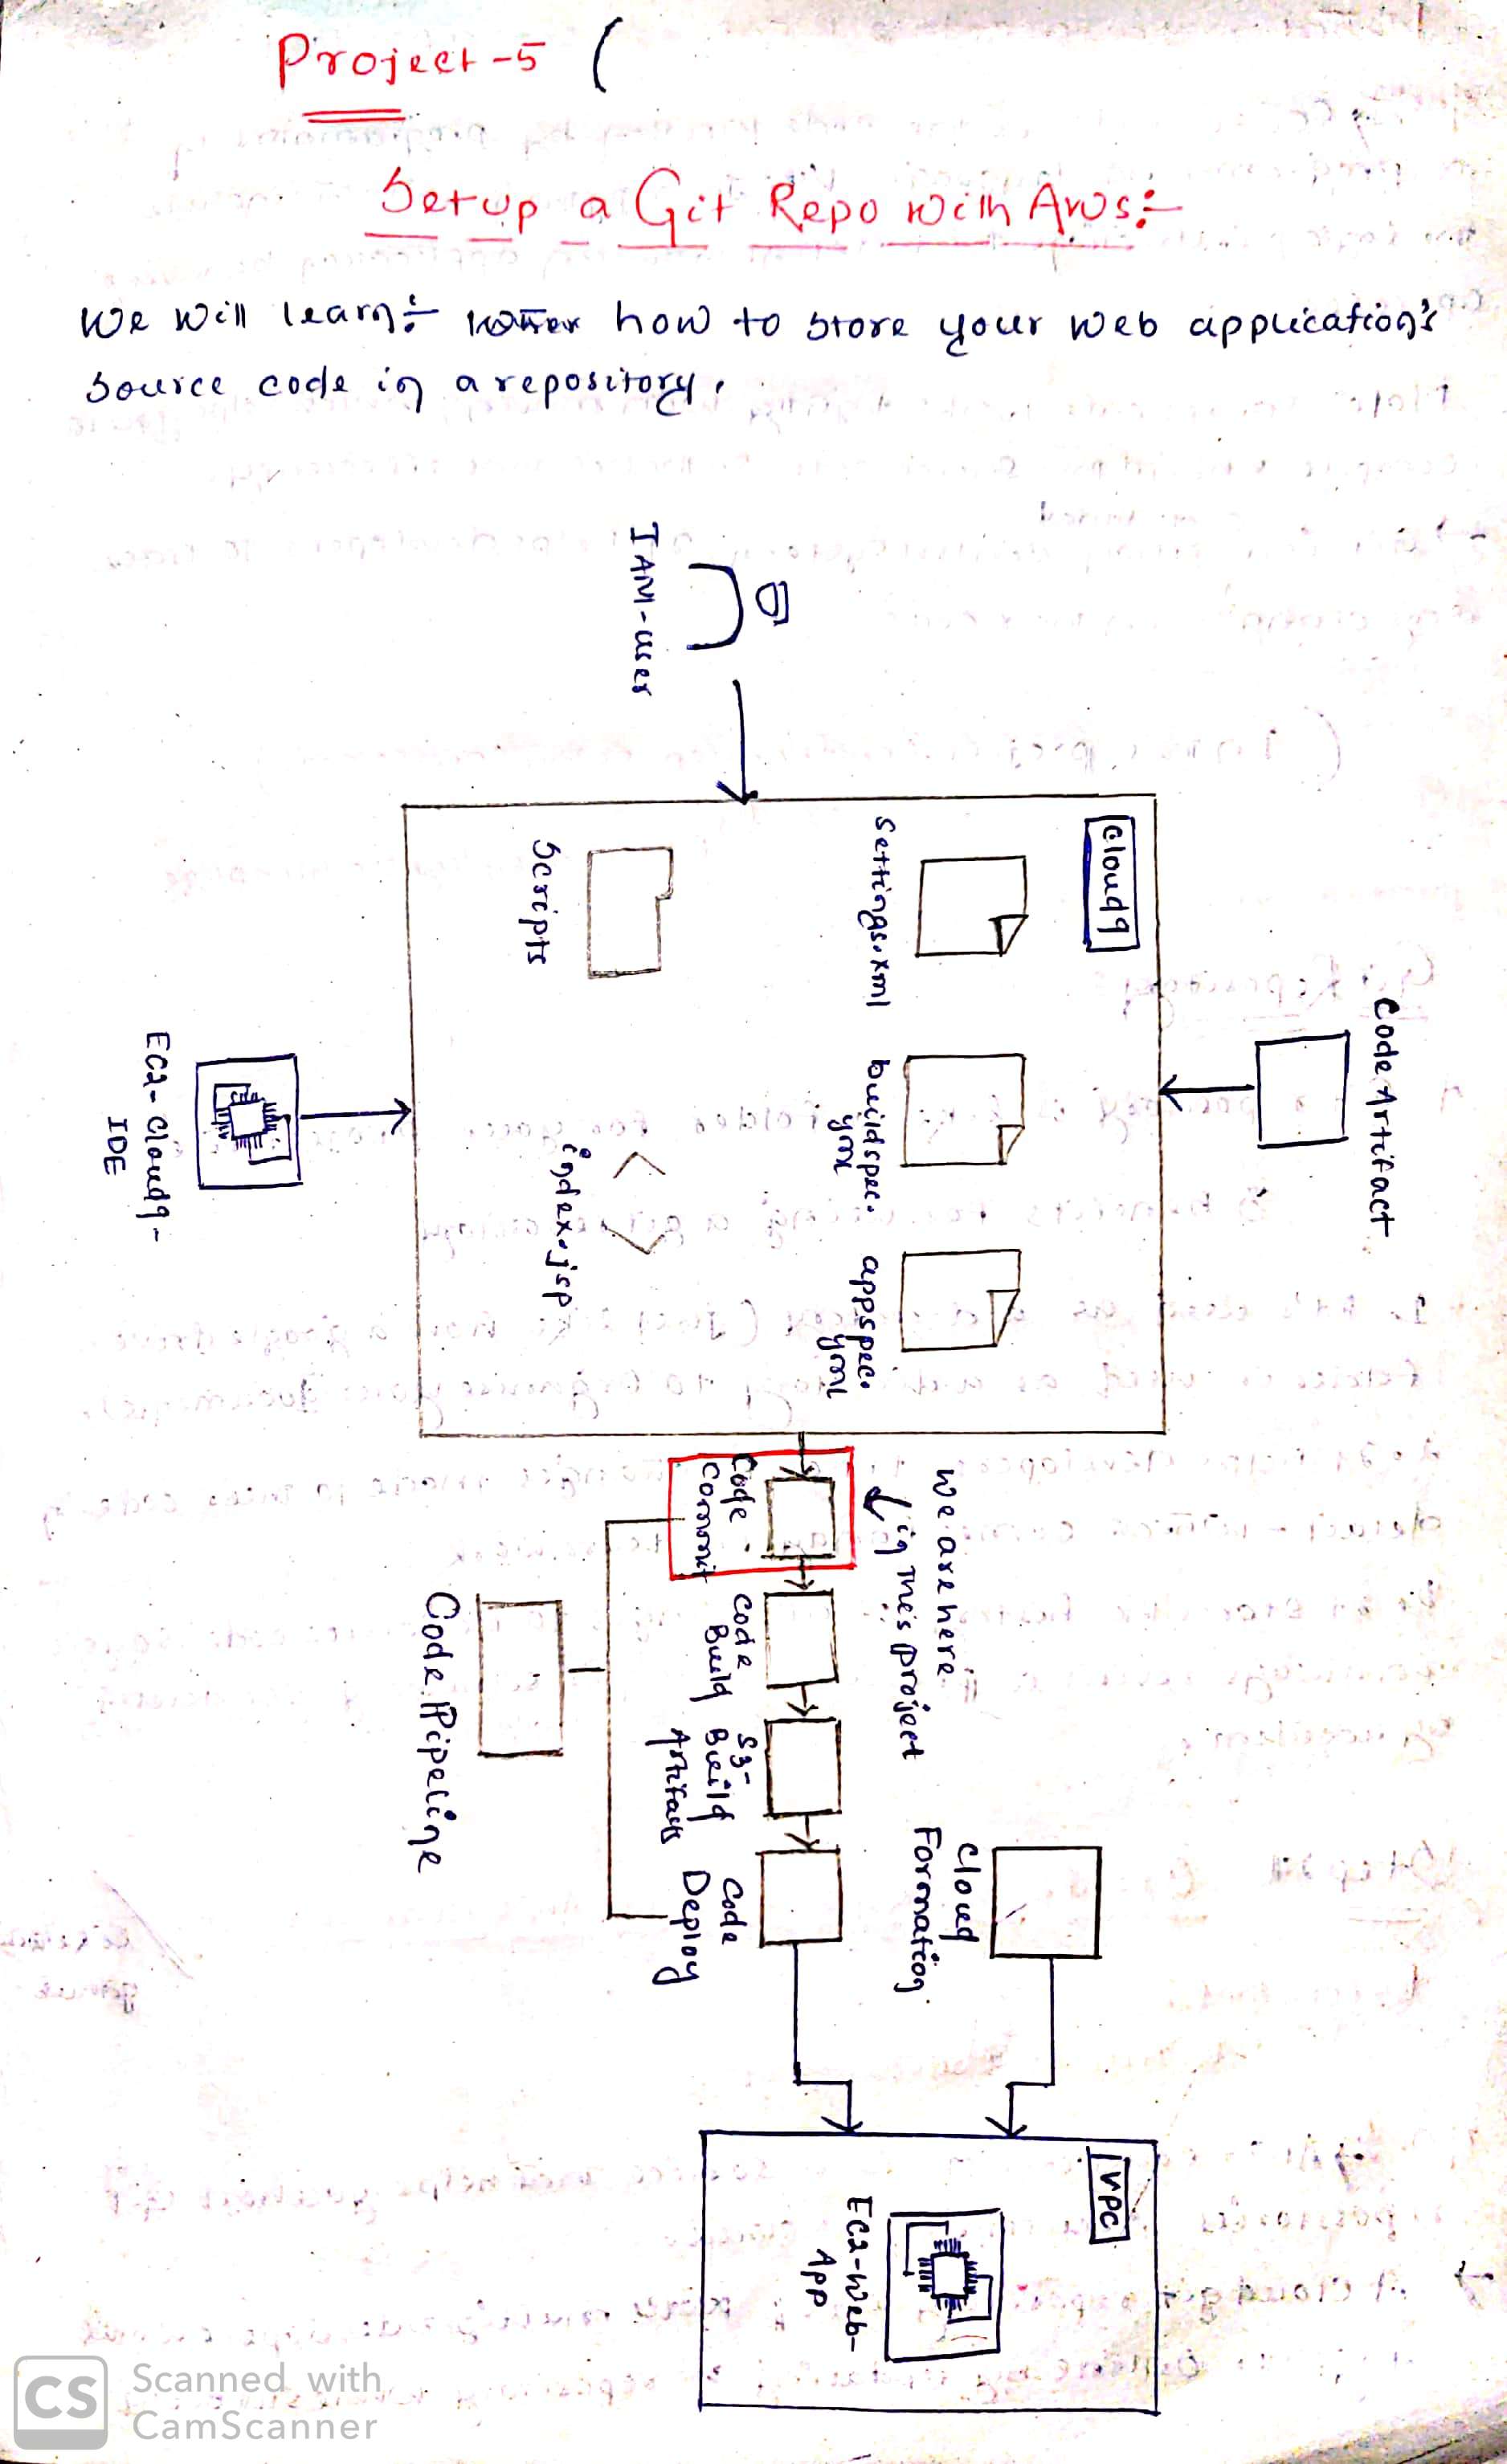 Project-5 (
Setup a Git Repo with Aws:-
We will learn:- how to store your web application's
source code in a repository.
IAM-user
Cloud9
Settings.xml
buildspec.
yml
appspec.
yml
Scripts
index.jsp
Code Artifact
EC2-Cloud9-
IDE
We are here
in this project
Code
Commit
Code
Build
S3-
Build
Artifacts
Code
Deploy
Code Pipeline
Cloud
Formation
VPC
EC2-Web-
App
CS
Scanned with
CamScanner